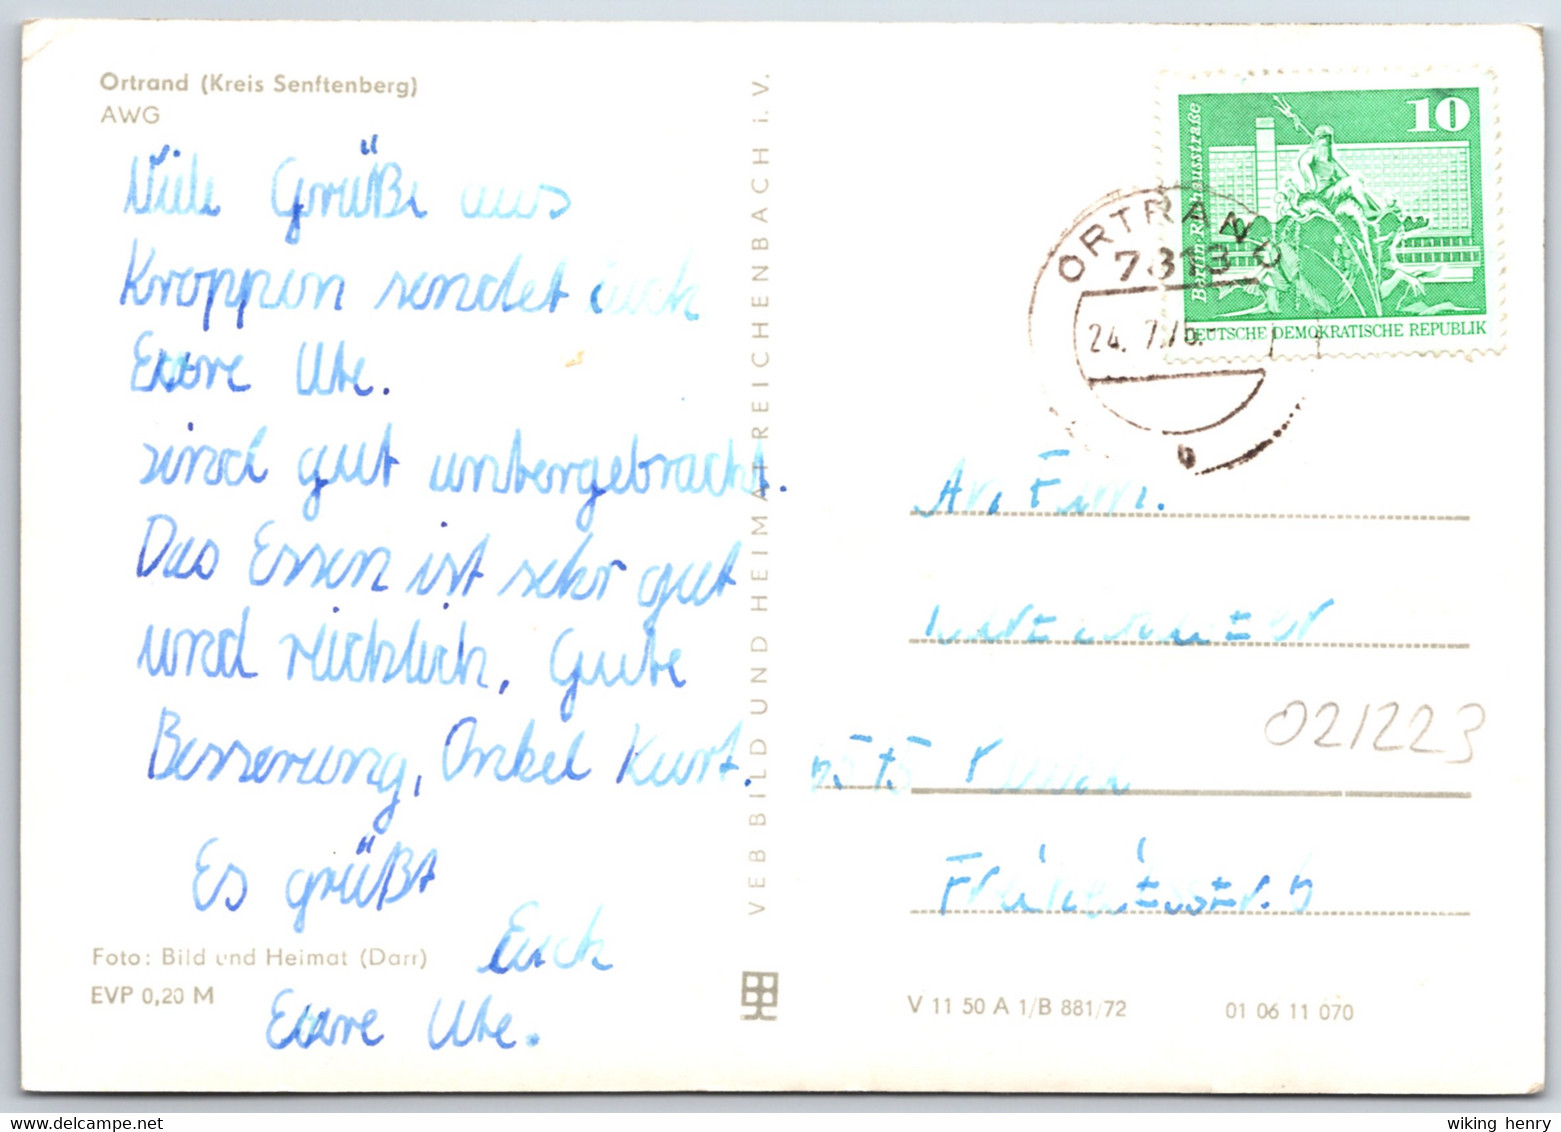 Ortrand (Kreis Senftenberg)
AWG
Viele Grüße aus
Kroppen sendet Euch
Eure Ute.
sind gut untergebracht.
Das Essen ist sehr gut
und reichlich, Gute
Besserung, Onkel Kurt.
Es grüßt
Euch
Eure Ute.
Foto: Bild und Heimat (Darr)
EVP 0,20 M
VEB BILD UND HEIMAT REICHENBACH i. V.
10
Berlin-Rathausstraße
DEUTSCHE DEMOKRATISCHE REPUBLIK
ORTRAND
7813
24. 7.76.-
b
An Fam.
021223
V 11 50 A 1/B 881/72
01 06 11 070
wiking henry